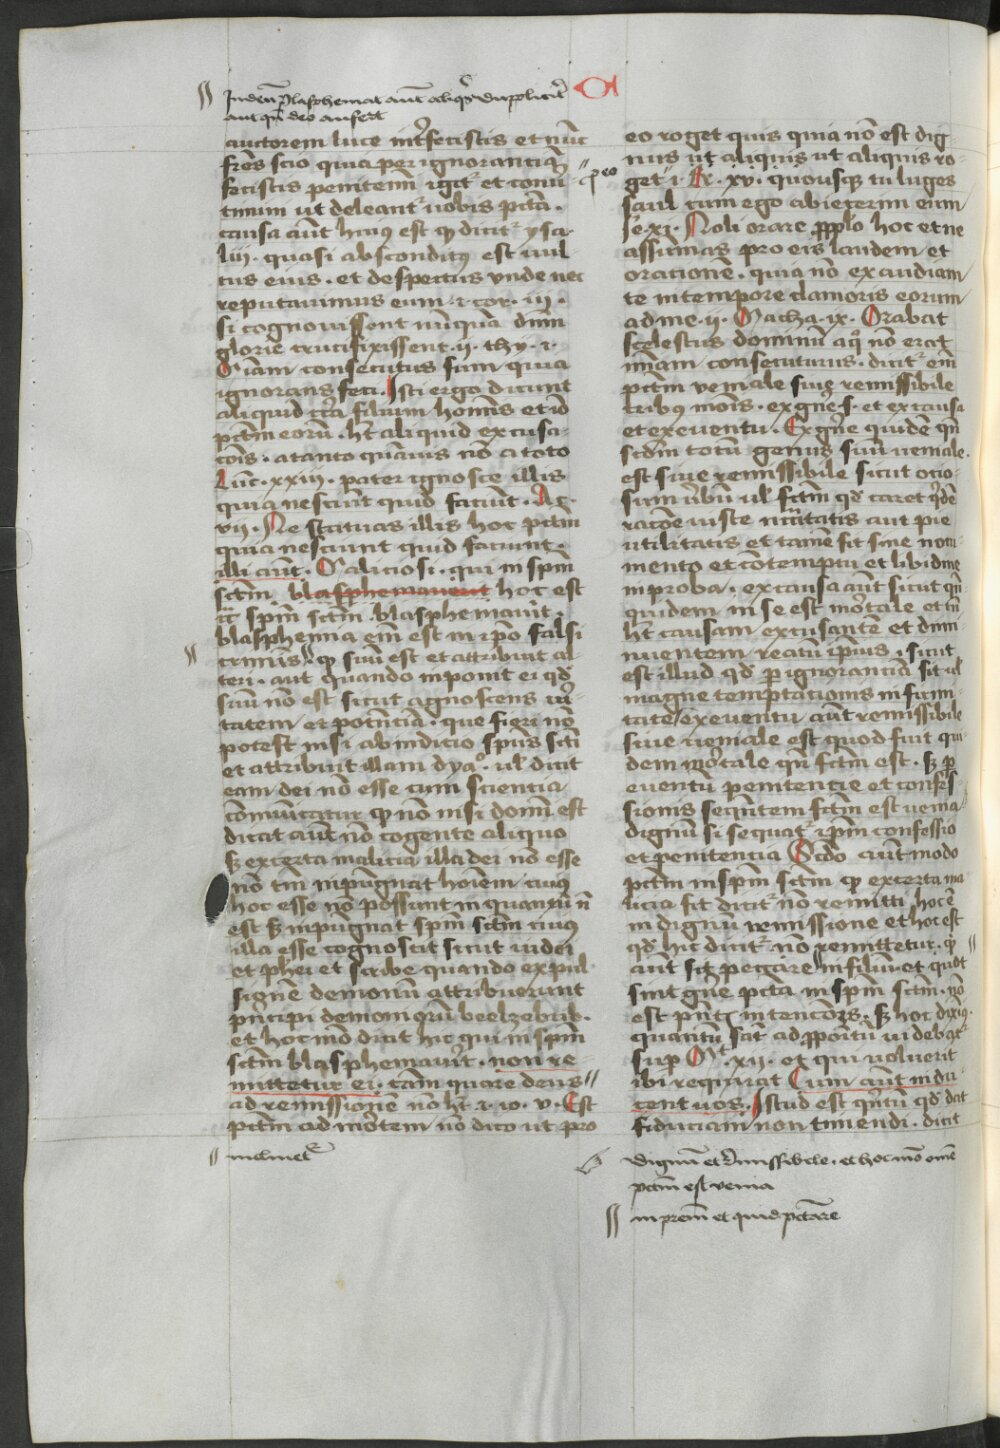 aut qn deo aufert
auctorem luce interfecistis et nunc
fres scio quia per ignorantiam
fecistis penitemini igitur et conver
timini ut deleantur vobis pcta.
causa aut huius est qz dicitur ysa.
liii. quasi absconditus est vul
tus eius. et despectus unde nec
reputavimus eum. i. cor. ii.
si cognovissent nunquam dnm
glorie crucifixissent. ii. thy. i.
Miam consecutus sum quia
ignorans feci. Isti ergo dicunt
aliquid contra filium hominis et ideo
pctm eorum. ht aliquid excusa
tois. a tanto quamvis no a toto
Luc. xxiii. pater ignosce illis
quia nesciunt quid faciunt. Ac.
vii. Ne statuas illis hoc pctm
quia nesciunt quid faciunt.
illi aut. Maliciosi. qui in spm
sctm. blasphemaverit hoc est
blasphemia em est in ipso falsi
criminis qz suum est et attribuit al
teri. aut quando imponit ei qd
suum non est sicut agnoscens veri
tatem et potentiam. que fieri non
potest nisi ab indicio spus scti
et attribuit illam dyaº. vel dicit
eam dei no esse cum scientia
dicat aut no cogente aliquo
sz ex certa malicia illa dei no esse
no tm inpugnat hoiem cuius
hoc esse no possunt in quantum
est sz inpugnat spm sctm cuius
illa esse cognoscit sicut iudei
et pharisei et scribe quando expul
signem demonum attribuerunt
principi demoniorum beelzebub.
et hoc modo dicit hic qui in spm
sctm blasphemaverit. non re
mittetur ei. tam quare deus
ad remissionem no ht. i. io. v. Est
pctm ad mortem no dico ut pro
eo roget quis quia no est dig
nus ut aliquis ut aliquis ro
get. i. R. xv. quousqz tu luges
saul cum ego abiecerim eum
Ie. xi. Noli orare pro pplo hoc et ne
assumas pro eis laudem et
orationem. quia no exaudiam
te in tempore clamoris eorum
ad me. ii. Macha. ix. Orabat
scelestus dominum a quo no erat
miam consecuturus. dicitur em
pctm veniale sive remissibile
tribus modis. ex gne s. et ex causa
et ex eventu. Ex gne quidem qn
scdm totum genus suum veniale.
est sive remissibile sicut ocio
sum verbum vel fctm qd caret quidem
racoe iuste necessitatis aut pie
utilitatis et tamen fit sine nocu
mento et contemptu et libidine
inproba. ex causa aut sicut qn
quidem in se est mortale et tn
ht causam excusantem et dimi
nuentem reatum ipsius. sicut
est illud qd per ignorantiam fit vel
magne temptationis infirmi
tate. ex eventu aut remissibile
sive veniale est quod fuit qui
dem mortale qn fctm est. sz per
eventum penitentie et confes
sionis sequentem fctm est venia
dignum si sequatur ipsam confessio
et penitencia Scdo aut modo
pctm in spm sctm qz ex certa ma
licia fit dicitur non remitti. hoc est
indignum remissione et hoc est
qd hic dicitur no remittetur. qz
aut sit peccare in filium. et quot
sint gne pcta in spm sctm. no
est pntis intencois. sz hoc diximus.
quantum sat ad ppoitum videbatur
sup Mt. xii. et qui voluerit
ibi requirat Cum aut indu
cent vos. Istud est quartum qd dat
fiduciam non timendi. dicit
dignum et remissibile. et hoc modo omne
pctm est venia